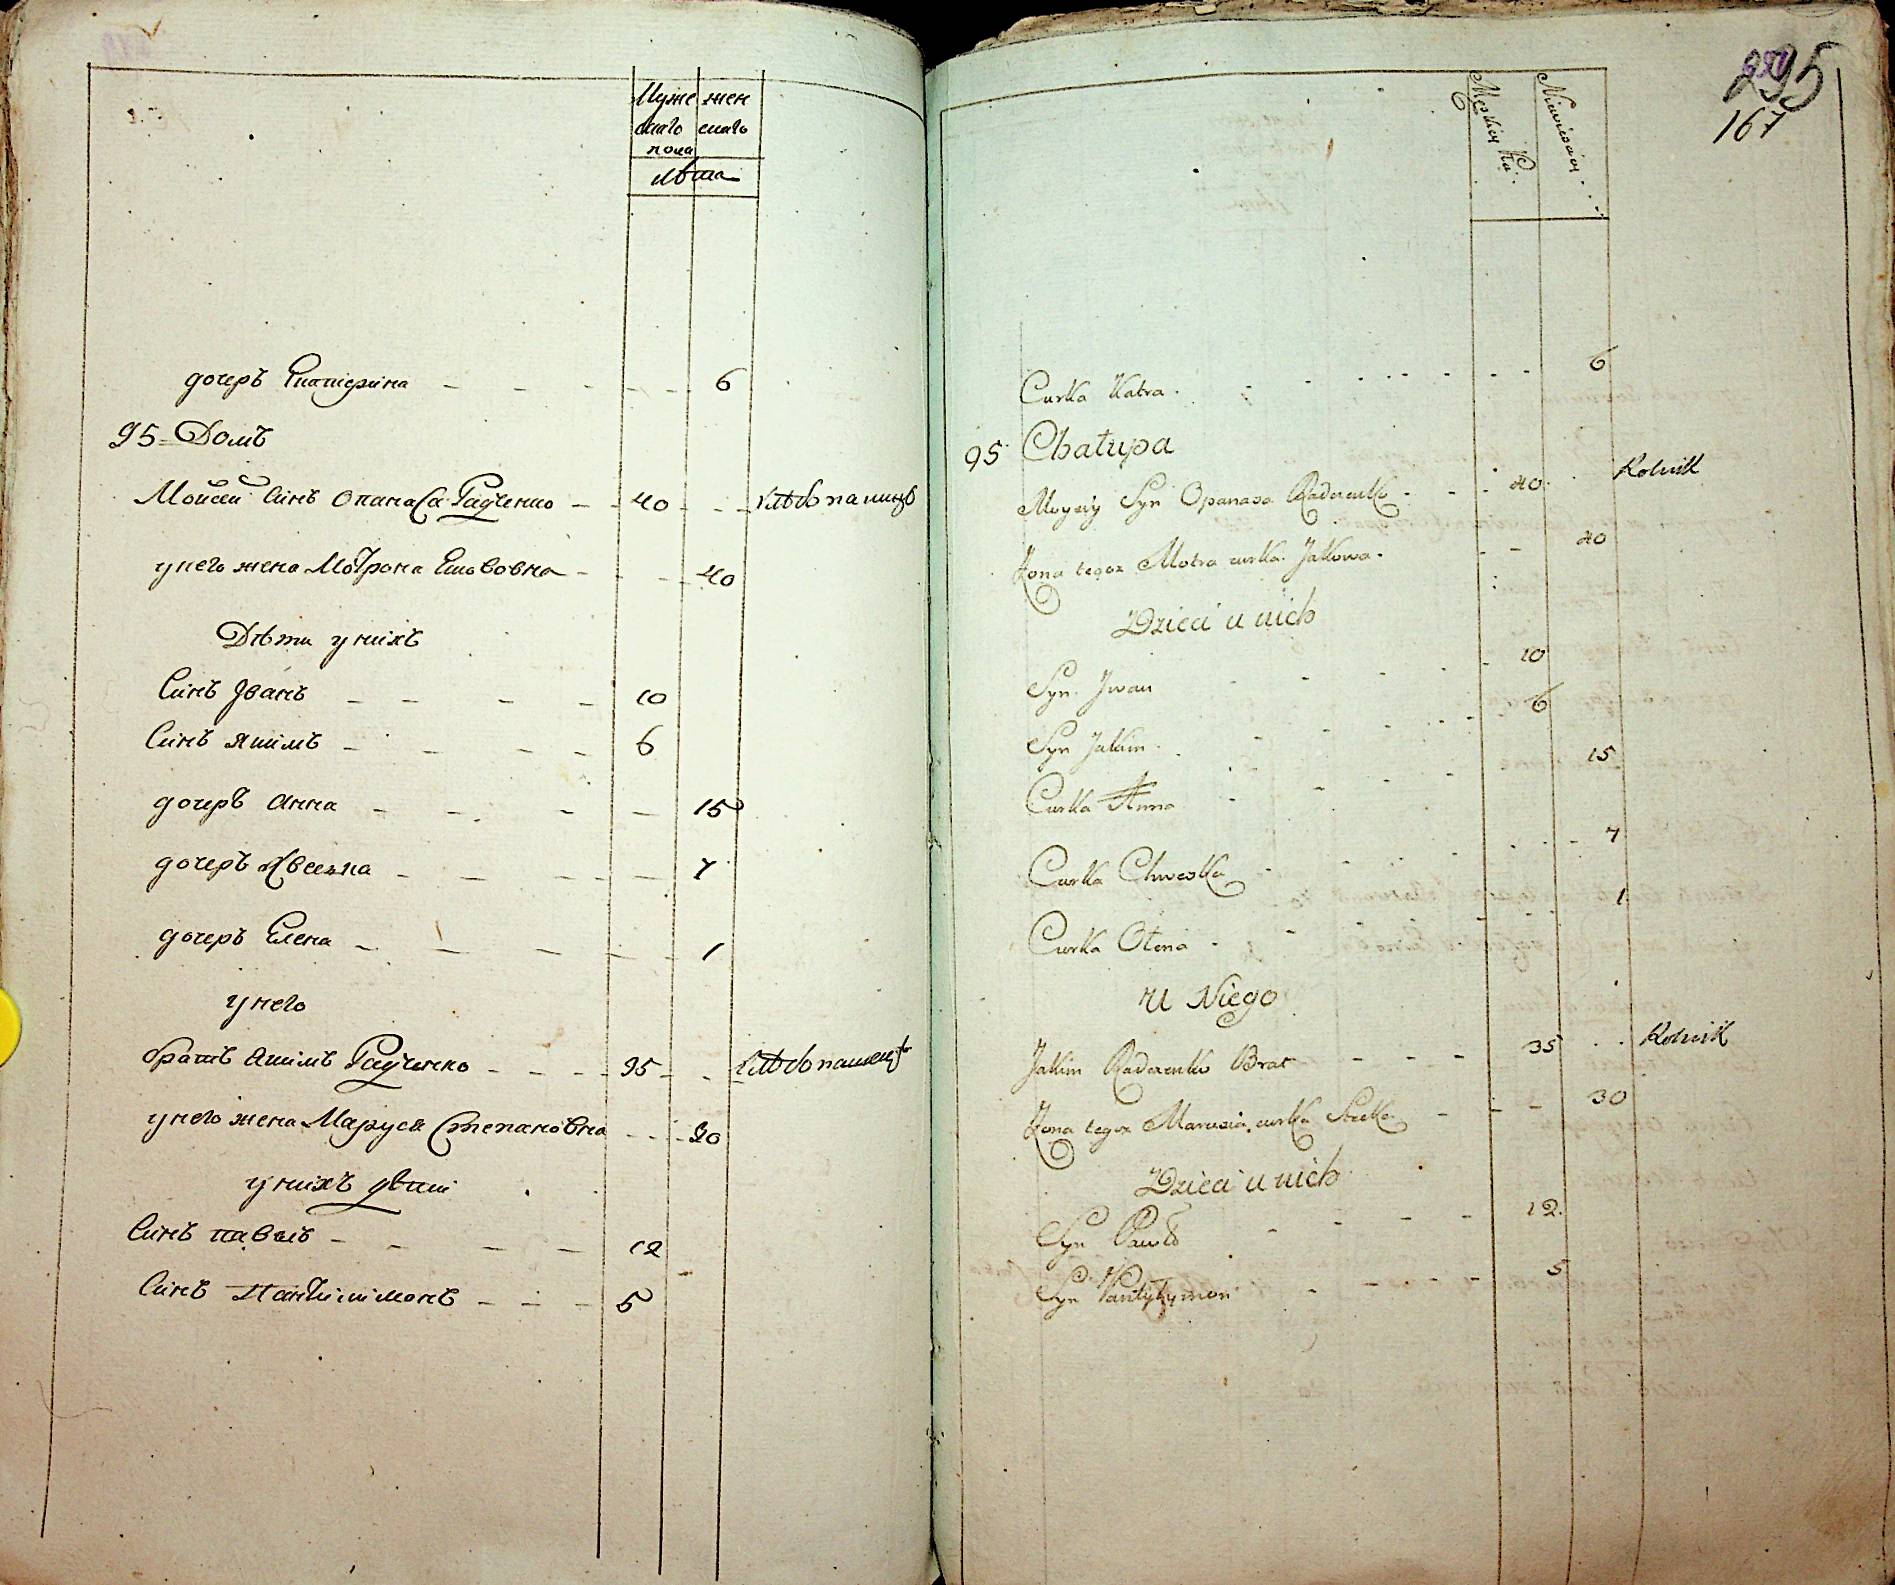 Муже жен
скаго скаго
пола
лѣта
дочерь Екатерина 6
95 Домъ
Моисей Синъ Опанаса Радченко 40 хлѣбопашецъ
у него жена Мотрона Якововна 40
Дѣти у нихъ
Синъ Иванъ 10
Синъ Якимъ 6
дочерь Анна 15
дочерь Хвеська 7
дочерь Елена 1
у него
братъ Якимъ Радченко 35 хлѣбопашецъ
у него жена Маруся Степановна 30
у нихъ дѣти
Синъ павелъ 12
Синъ Пантилимонъ 5
295
167
Męskiey
Niewieściey
Curka Katra 6
95 Chałupa
Moysiy Syn Opanasa Radczenko 40 Rolnik
Żona tegoz Motra curka Jakowa 40
Dzieci u nich
Syn Jwan 10
Syn Jakim 6
Curka Anna 15
Curka Chweska 7
Curka Ołena 1
U Niego
Jakim Radczenko Brat 35 Rolnik
Żona tegoz Marusia curka Stecka 30
Dzieci u nich
Syn Pawło 12
Syn Pantyłymon 5